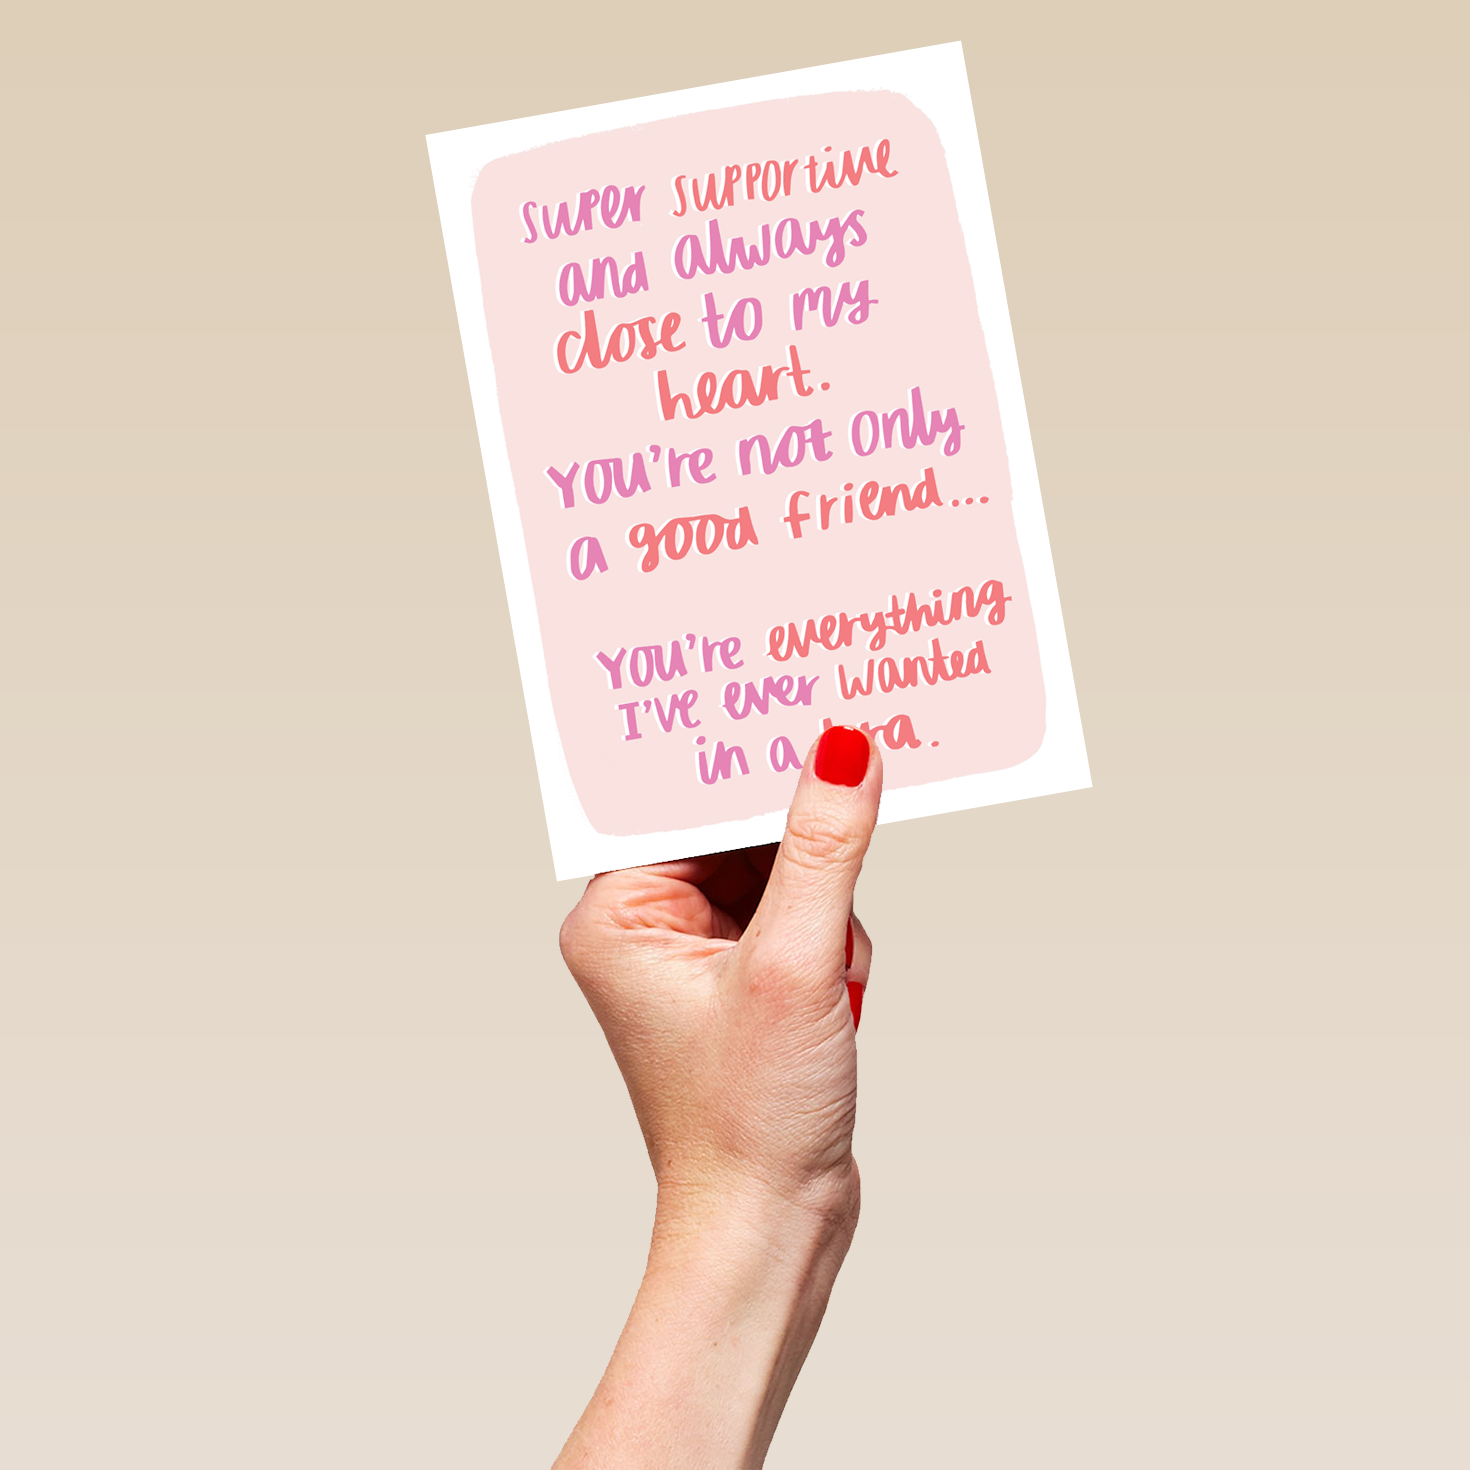 super supportive
and always
close to my
heart.
You're not only
a good friend...
You're everything
I've ever wanted
in a bra.